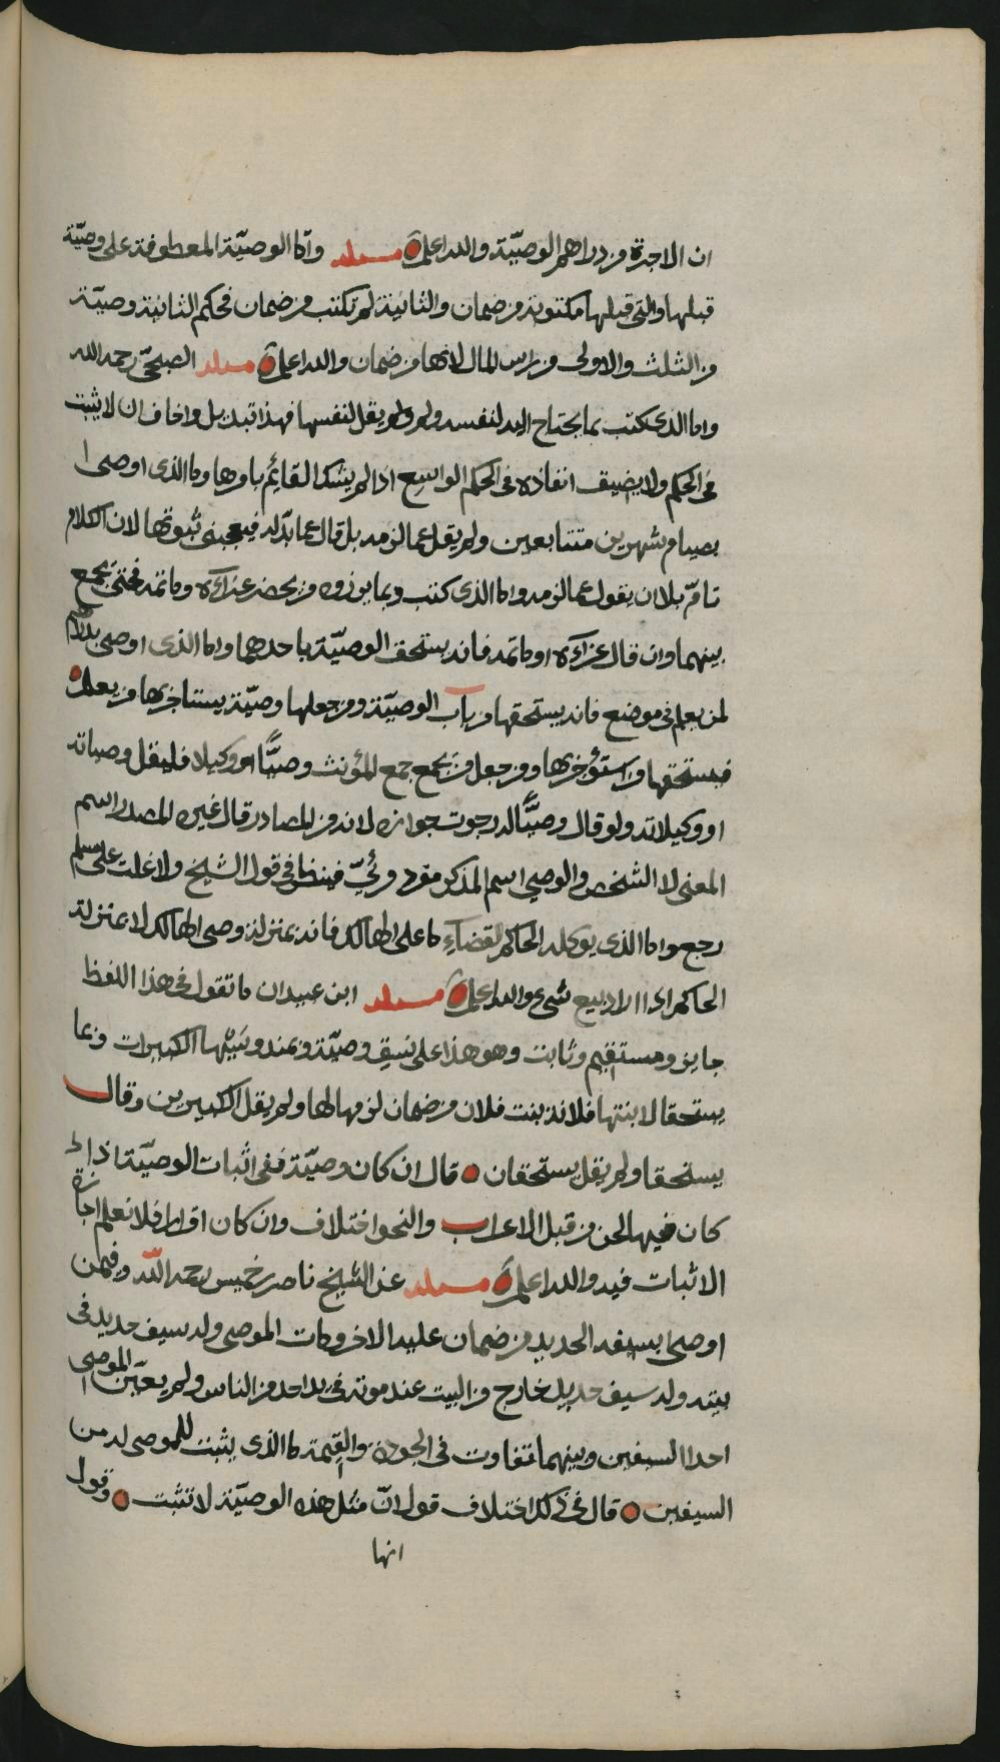 ان الاجرة من دراهم الوصيّة والله اعلم مسئله وأما الوصيّة المعطوفة على وصيّة
قبلها والتى قبلها مكتوبة من ضمان والثانية لم تكتب من ضمان فحكم الثانية وصيّة
من الثلث والاولى من راس المال لانها من ضمان والله اعلم مسئله الصبحيّ رحمه الله
واما الذى يكتب بما يحتاج اليه لنفسه ولم يقل لنفسها فهذا تبديل واخاف ان لا يثبت
فى الحكم ولا يضيق انفاذه فى الحكم الواسع اذا لم يشك القائم بامرها وما الذى اوصى
بصيام شهرين متتابعين ولم يقل عما لزمه بل قال عما بدّله فيعجبنى ثبوتها لان الكلام
تامّ بلا ان يقول عما لزمه واما الذى كتب وبما يوزوه من يحضر عزآءه وماتمه فحتى يجمع
بينهما وان قال عزآءه او ماتمه فانه يستحق الوصيّة باحدهما واما الذى اوصى بدراهم
لمن يعلم فى موضع فانه يستحقها من باب الوصيّة ومن جعلها وصيّة يستاجر بها من يعلم
فيستحقها من استؤجر بها ومن جعل من يجمع جمع المؤنث وصيًّا او وكيلا فليقل وصياته
او وكيلاته ولو قال وصيًّا له رجوت جوازه لانه من المصادر قال غيره المصدر اسم
المعنى لا الشخص والوصي اسم المذكر مفرد فينظر فى قول الشيخ ولا غلت على مسلم
رجع واما الذى يوكله الحاكم لقضاء ما على الهالك فانه بمنزلة وصى الهالك لا بمنزلة
الحاكم اذا اراد بيع شىء والله اعلم مسئله ابن عبيدان ما تقول فى هذا اللفظ
جايز ومستقيم وثابت وهو هذا على نسق وصيّة ومنديسيّها الكبيرات
يستحقا لابنتها فلانة بنت فلان من ضمان لزمها لها ولم يقل الكبيرين وقال
يستحقا ولم يقل يستحقان قال ان كان وصيّة ففى اثبات الوصيّة اذا
كان فيها لحن من قبل الاعراب والنحو اختلاف وان كان اقرارا فلا نعلم اجازة
الاثبات فيه والله اعلم مسئله عن الشيخ ناصر خميس رحمه الله وفيمن
اوصى بسيفه الحديد من ضمان عليه لاخر ومات الموصى وله سيف حديد فى
بيته وله سيف حديد خارج من البيت عند موته فى يد احد من الناس ولم يعيّن الموصى
احد السيفين وبينهما تفاوت فى الجودة والقيمة ما الذى يثبت للموصى له من
السيفين قال فى ذلك اختلاف قول انّ مثل هذه الوصيّة لا تثبت وقول
انها